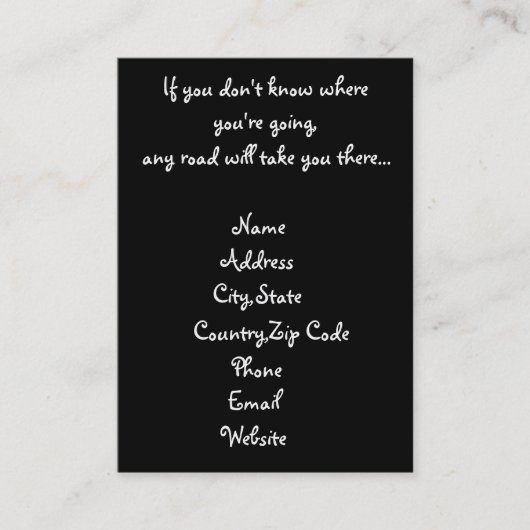 If you don't know where
you're going,
any road will take you there...
Name
Address
City,State
Country,Zip Code
Phone
Email
Website